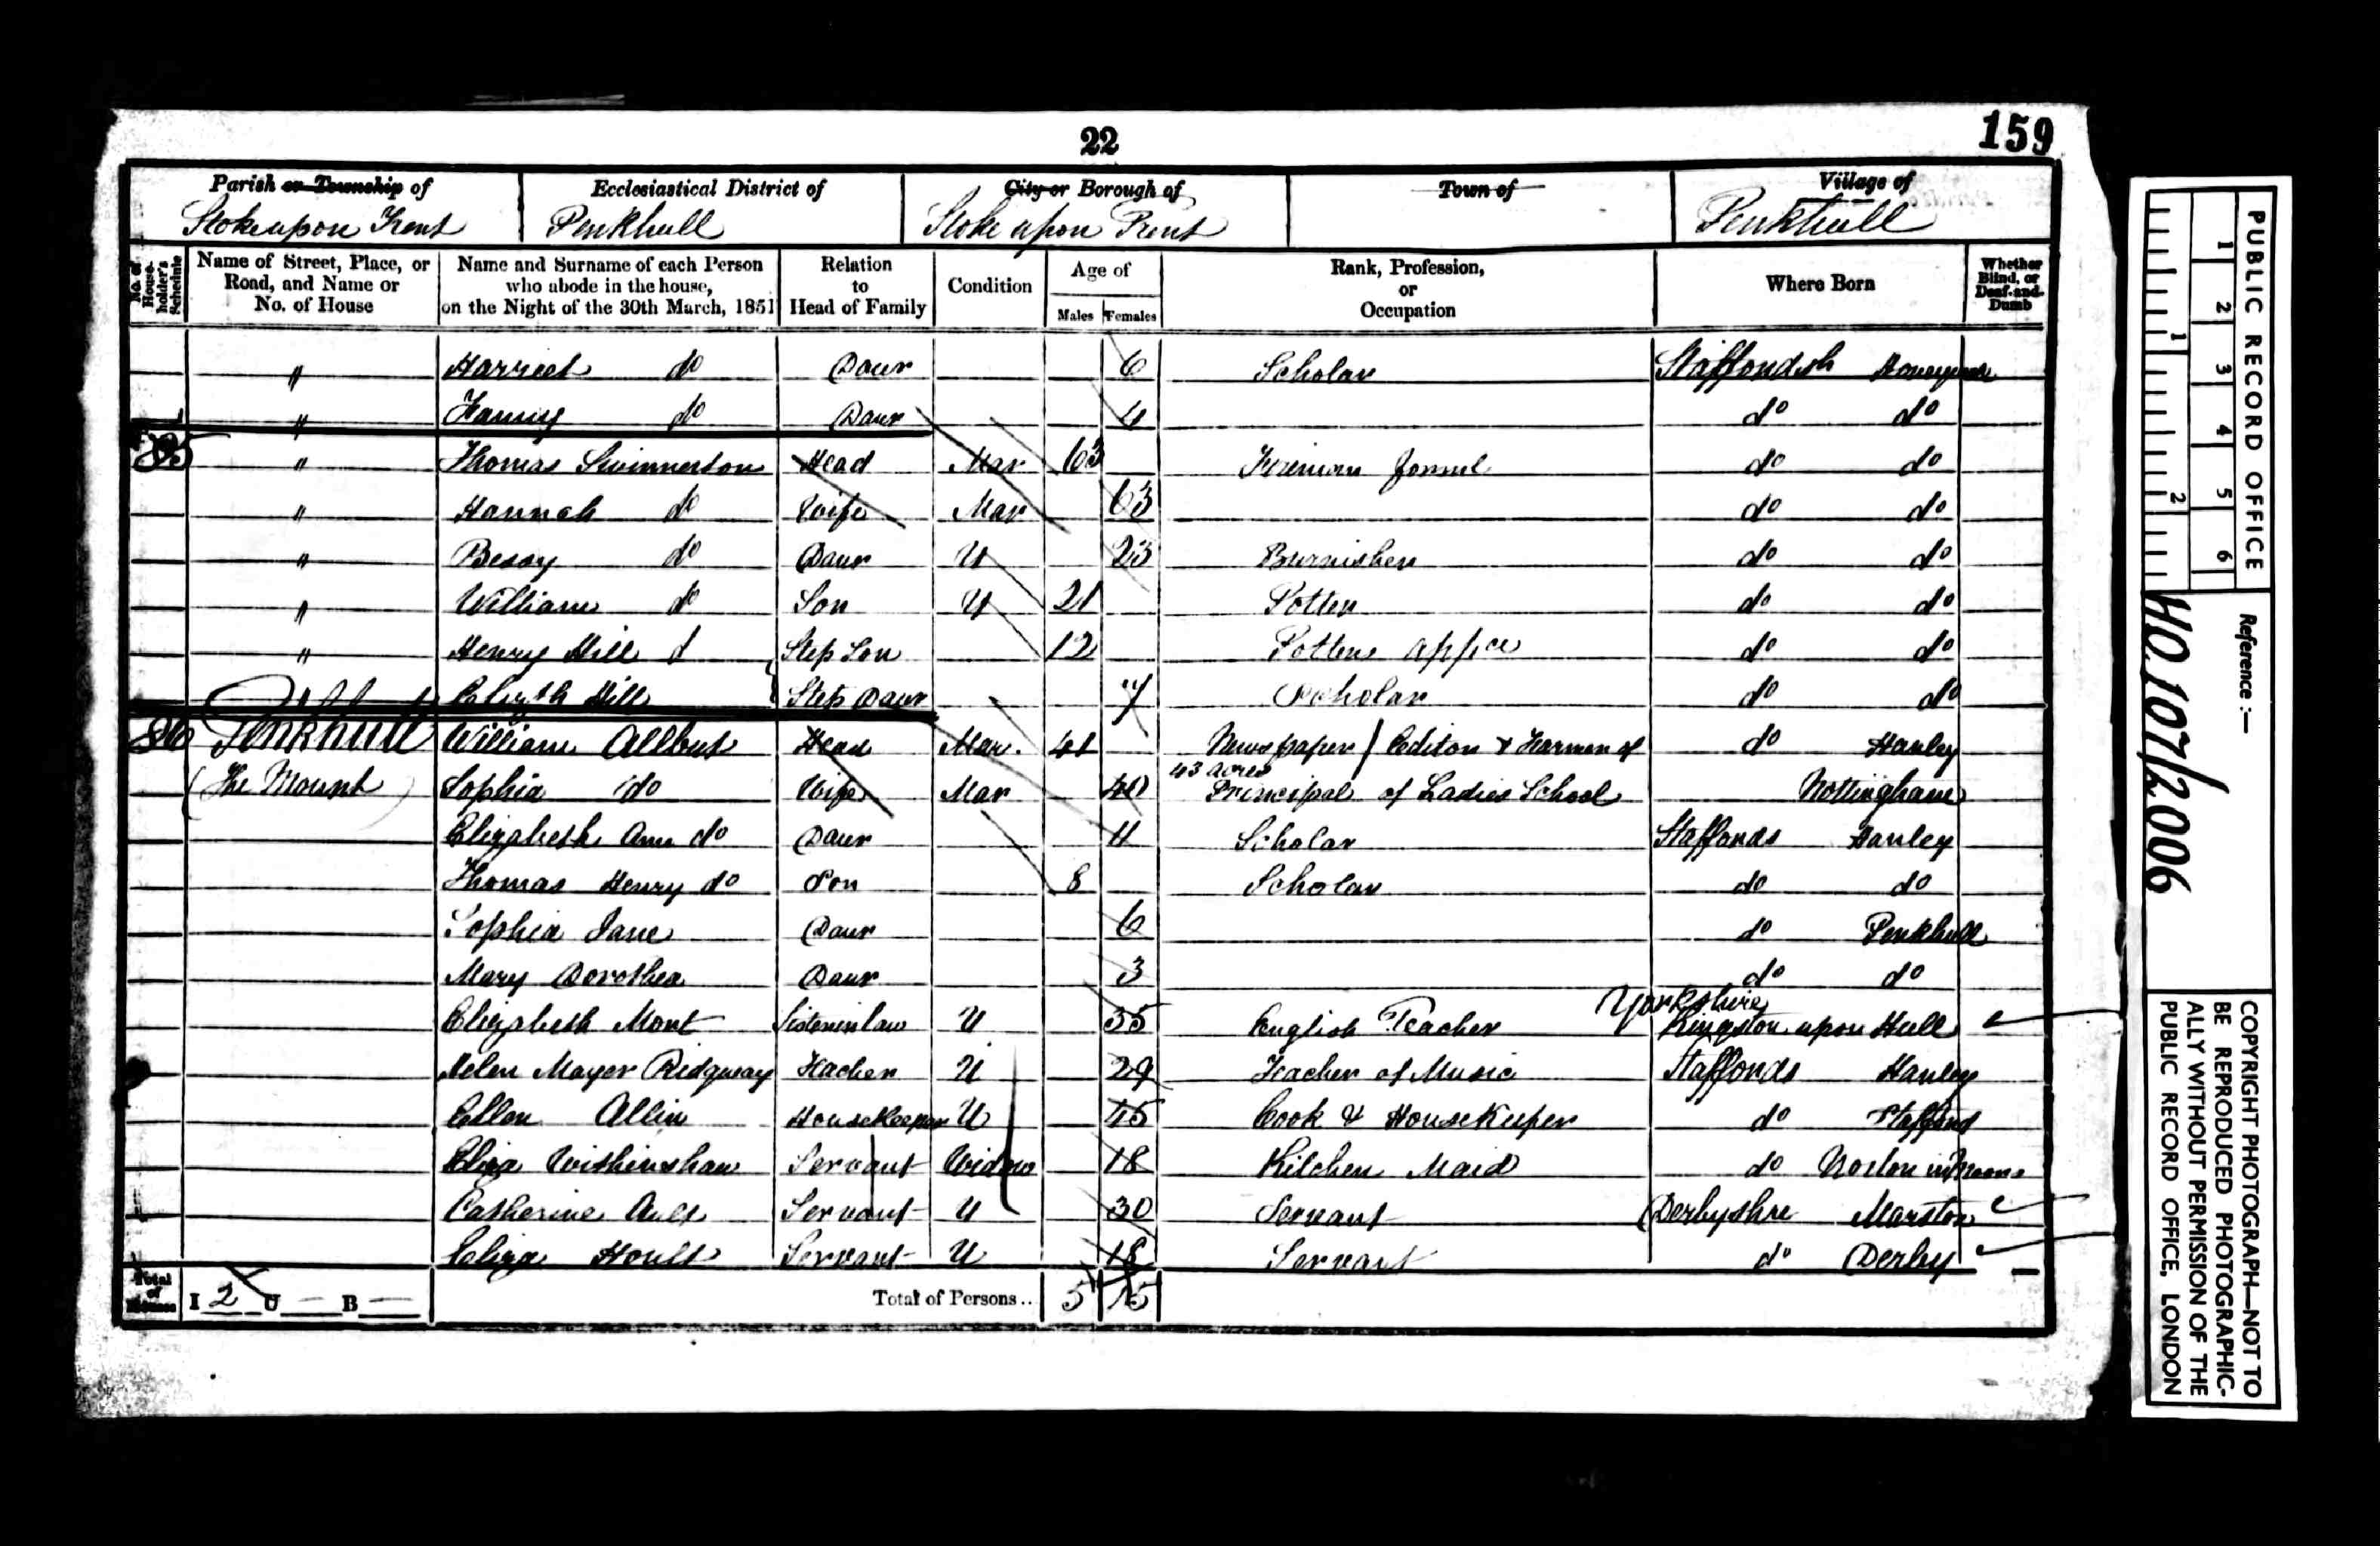 22
159
Parish or Township of
Stoke upon Trent
Ecclesiastical District of
Penkhull
City or Borough of
Stoke upon Trent
Town of
Village of
Penkhull
No. of House-holder's Schedule
Name of Street, Place, or Road, and Name or No. of House
Name and Surname of each Person who abode in the house, on the Night of the 30th March, 1851
Relation to Head of Family
Condition
Age of
Males Females
Rank, Profession, or Occupation
Where Born
Whether Blind, or Deaf-and-Dumb
" Harriet do Daur 6 Scholar Staffordsh
" Fanny do Daur 4 do do
85 " Thomas Swinnerton Head Mar 63 Fireman do do
" Hannah do Wife Mar 63 do do
" Bessy do Daur U 23 Burnisher do do
" William do Son U 21 Potter do do
" Henry Hill Step Son 12 Potters do do
" Hill Step Daur 7 Scholar do do
86 Penkhull William Allbut Head Mar. 41 Newspaper Editor & Farmer of do Hanley
43 acres
(The Mount) Sophia do Wife Mar 40 Principal of Ladies School Nottingham
Elizabeth Ann do Daur 11 Scholar Staffords Hanley
Thomas Henry do Son 8 Scholar do do
Sophia Jane Daur 6 do Penkhull
Mary Dorothea Daur 3 do do
Elizabeth Mort Sister in law U 35 English Teacher Yorkshire Kingston upon Hull
Helen Mayer Ridgway Teacher U 29 Teacher of Music Staffords Hanley
Ellen Allin Housekeeper U 45 Cook & Housekeeper do Stafford
Eliza Withinshaw Servant Widow 18 Kitchen Maid do Norton in Moors
Catherine Ault Servant U 30 Servant Derbyshire Marston
Eliza Hoult Servant U 18 Servant do Derby
Total of Houses I 2 U — B —
Total of Persons.. 5 15
PUBLIC RECORD OFFICE
1 2 3 4 5 6
1 2
Reference :—
HO 107/2006
COPYRIGHT PHOTOGRAPH—NOT TO
BE REPRODUCED PHOTOGRAPHIC-
ALLY WITHOUT PERMISSION OF THE
PUBLIC RECORD OFFICE, LONDON